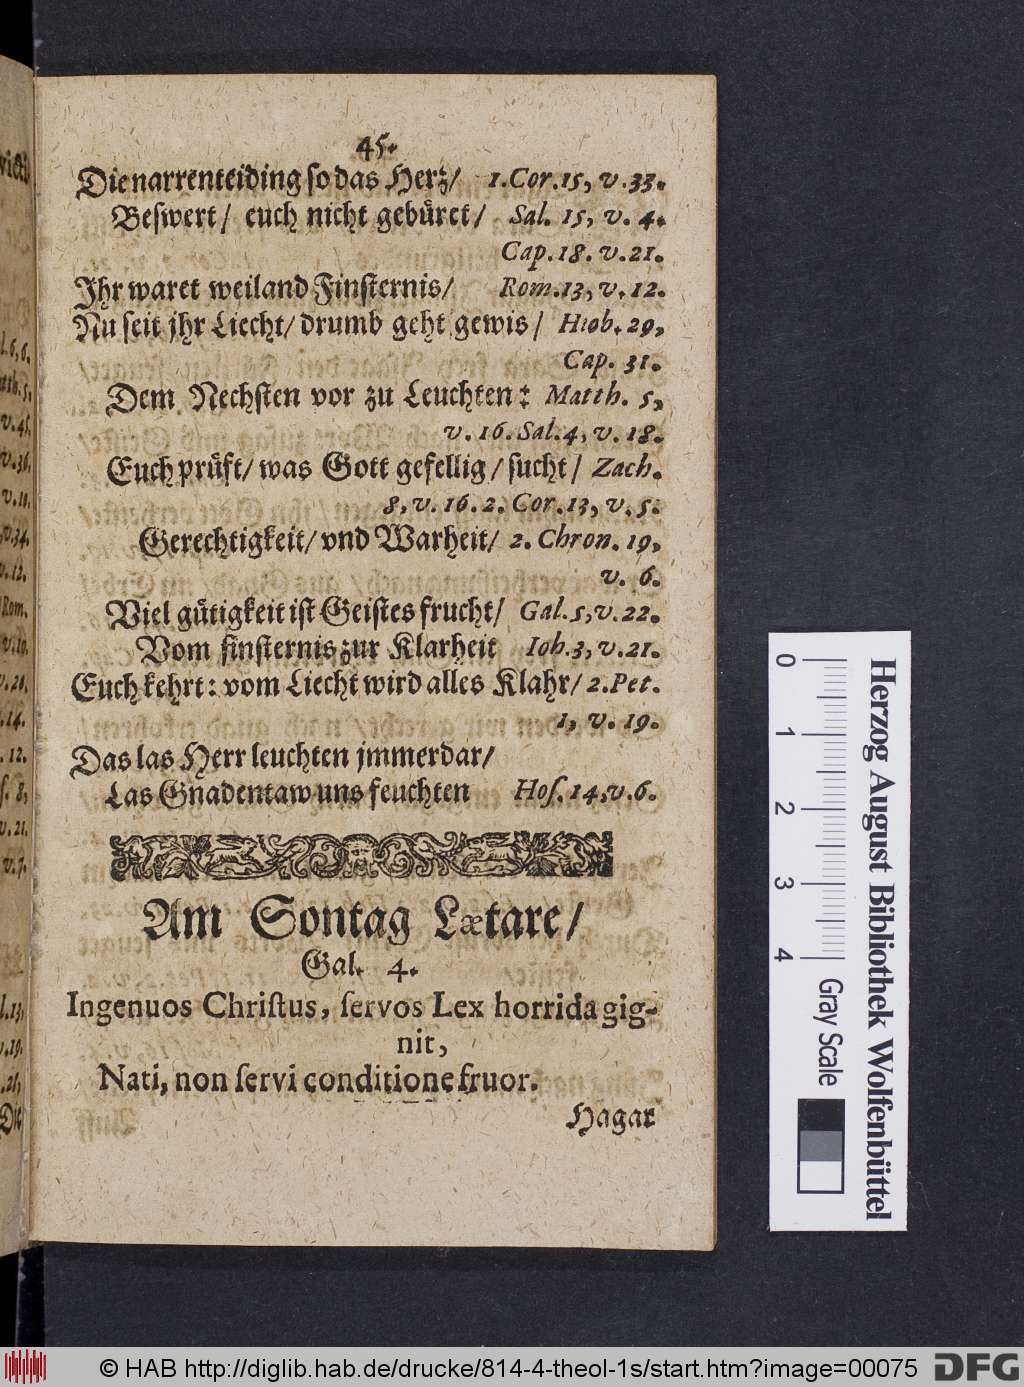 45.
Die narrenteiding so das Hertz/ 1. Cor. 15, v. 33.
Beswert/ euch nicht gebüret/ Sal. 15, v. 4.
Cap. 18. v. 21.
Ihr waret weiland Finsternis/ Rom. 13, v. 12.
Nu seit jhr Liecht/ drumb geht gewis/ Hiob. 29,
Cap. 31.
Dem Nechsten vor zu Leuchten: Matth. 5,
v. 16. Sal. 4, v. 18.
Euch prüft/ was Gott gefellig/ sucht/ Zach.
8, v. 16. 2. Cor. 13, v. 5.
Gerechtigkeit/ vnd Warheit/ 2. Chron. 19,
v. 6.
Viel gütigkeit ist Geistes frucht/ Gal. 5, v. 22.
Vom finsternis zur Klarheit Ioh. 3, v. 21.
Euch kehrt: vom Liecht wird alles Klahr/ 2. Pet.
1, v. 19.
Das las Herr leuchten jmmerdar/
Las Gnadentaw uns feuchten Hoſ. 14, v. 6.
Am Sontag Lætare/
Gal. 4.
Ingenuos Chriſtus, ſervos Lex horrida gig-
nit,
Nati, non ſervi conditione fruor.
Hagar
l. 6, 6.
v. 45.
v. 36.
v. 10.
v. 34.
v. 12.
Rom.
v. 10.
v. 21.
. 14.
. 12.
ſ. 8,
v. 21.
v. 7.
l. 13,
v. 19.
. 21,
Die
0 1 2 3 4
Gray Scale
Herzog August Bibliothek Wolfenbüttel
© HAB http://diglib.hab.de/drucke/814-4-theol-1s/start.htm?image=00075
DFG